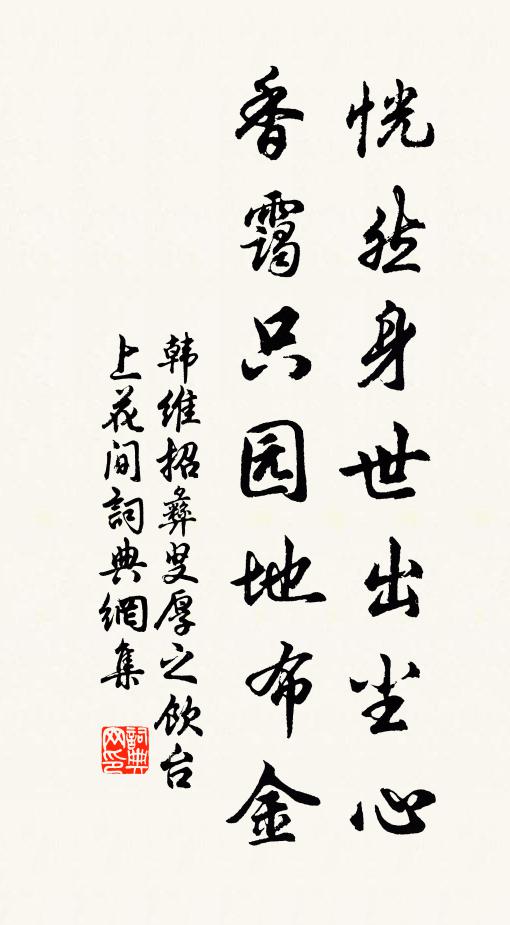 恍然身世出尘心
香霭只园地布金
韩维招彝叟厚之饮台
上花间詞典網集
詞典
网印